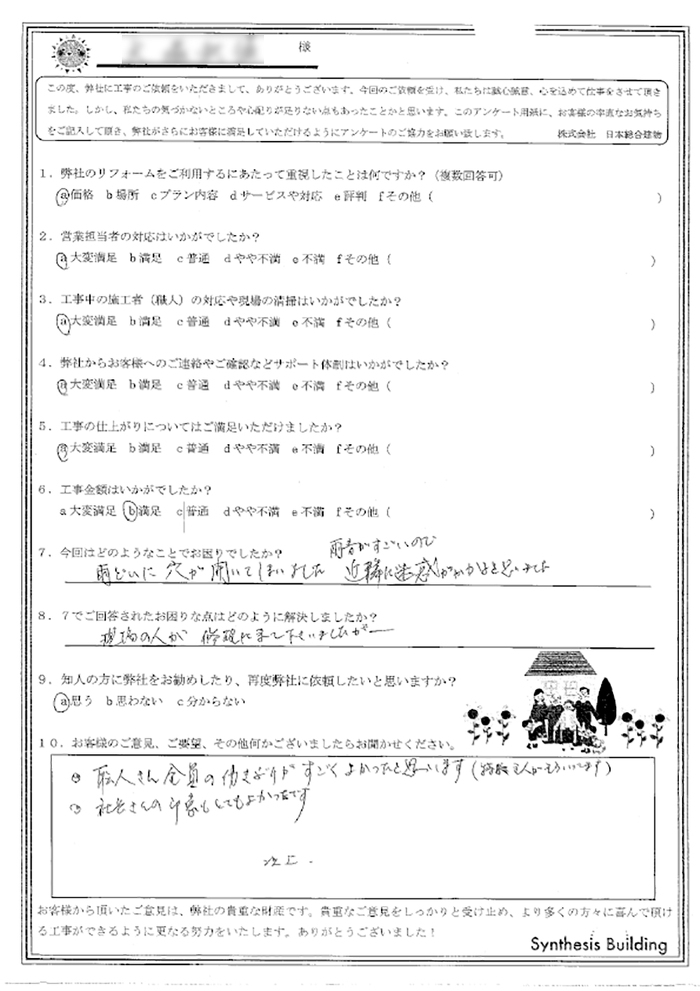 様
この度、弊社に工事のご依頼をいただきまして、ありがとうございます。今回のご依頼を受け、私たちは誠心誠意、心を込めて仕事をさせて頂き
ました。しかし、私たちの気づかないところや心配りが足りない点もあったことかと思います。このアンケート用紙に、お客様の率直なお気持ち
をご記入して頂き、弊社がさらにお客様に満足していただけるようにアンケートのご協力をお願い致します。 株式会社 日本総合建物
1．弊社のリフォームをご利用するにあたって重視したことは何ですか？（複数回答可）
a 価格 b 場所 c プラン内容 d サービスや対応 e 評判 f その他（ ）
2．営業担当者の対応はいかがでしたか？
a 大変満足 b 満足 c 普通 d やや不満 e 不満 f その他（ ）
3．工事中の施工者（職人）の対応や現場の清掃はいかがでしたか？
a 大変満足 b 満足 c 普通 d やや不満 e 不満 f その他（ ）
4．弊社からお客様へのご連絡やご確認などサポート体制はいかがでしたか？
a 大変満足 b 満足 c 普通 d やや不満 e 不満 f その他（ ）
5．工事の仕上がりについてはご満足いただけましたか？
a 大変満足 b 満足 c 普通 d やや不満 e 不満 f その他（ ）
6．工事金額はいかがでしたか？
a 大変満足 b 満足 c 普通 d やや不満 e 不満 f その他（ ）
7．今回はどのようなことでお困りでしたか？ 雨音がすごいので
雨どいに 穴が 開いてしまいました 近隣に迷惑がかかると思いました
8．7でご回答されたお困りな点はどのように解決しましたか？
現場の人が
9．知人の方に弊社をお勧めしたり、再度弊社に依頼したいと思いますか？
a 思う b 思わない c 分からない
10．お客様のご意見、ご要望、その他何かございましたらお聞かせください。
職人さん全員の働きぶりがすごくよかったと思います
社長さんの印象もとてもよかったです
以上.
お客様から頂いたご意見は、弊社の貴重な財産です。貴重なご意見をしっかりと受け止め、より多くの方々に喜んで頂け
る工事ができるように更なる努力をいたします。ありがとうございました！
Synthesis Building